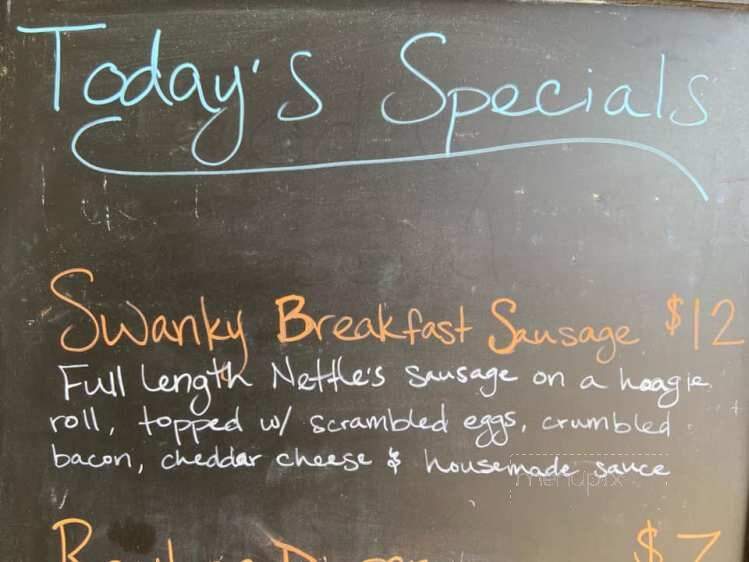 Today's Specials
Swanky Breakfast Sausage $12
Full length Nettle's sausage on a hoagie
roll, topped w/ scrambled eggs, crumbled
bacon, cheddar cheese & housemade sauce
menupix
$7